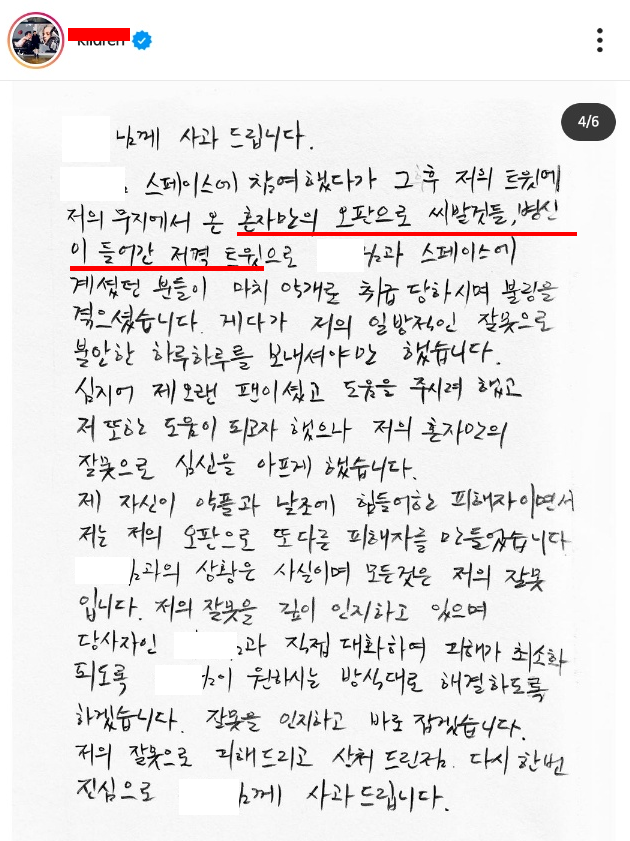 4/6
님께 사과 드립니다.
스페이스에 참여했다가 그 후 저의 트윗에
저의 무지에서 온 혼자만의 오판으로 씨발것들, 병신
이 들어간 저격 트윗으로 님과 스페이스에
계셨던 분들이 마치 악개로 취급 당하시며 불링을
겪으셨습니다. 게다가 저의 일방적인 잘못으로
불안한 하루하루를 보내셔야만 했습니다.
심지어 제 오랜 팬이셨고 도움을 주시려 했고
저 또한 도움이 되고자 했으나 저의 혼자만의
잘못으로 심신을 아프게 했습니다.
제 자신이 악플과 날조에 힘들어하는 피해자이면서
저는 저의 오판으로 또다른 피해자를 만들었습니다
님과의 상황은 사실이며 모든것은 저의 잘못
입니다. 저의 잘못을 깊이 인지하고 있으며
당사자인 님과 직접 대화하여 피해가 최소화
되도록 님이 원하시는 방식대로 해결하도록
하겠습니다. 잘못을 인지하고 바로 잡겠습니다.
저의 잘못으로 피해드리고 상처 드린점. 다시 한번
진심으로 님께 사과드립니다.